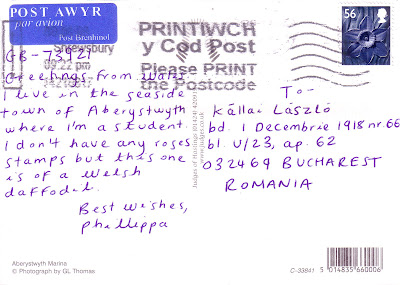 POST AWYR
par avion
Post Brenhinol
Shrewsbury
09:22 pm
PRINTIWCH
y Cod Post
Please PRINT
the Postcode
56
GB-73721
Greetings from Wales
I live in the seaside
town of Aberystwyth
where I'm a student.
I don't have any roses
stamps but this one
is of a Welsh
daffodil.
Best wishes,
Phillippa
To -
Kállai László
bd. 1 Decembrie 1918 nr. 66
bl. U/23, ap. 62
032469 BUCHAREST
ROMANIA
Judges of Hastings (01424) 420919
www.judges.co.uk
Aberystwyth Marina
© Photograph by GL Thomas
C-33841
5 014835 660006